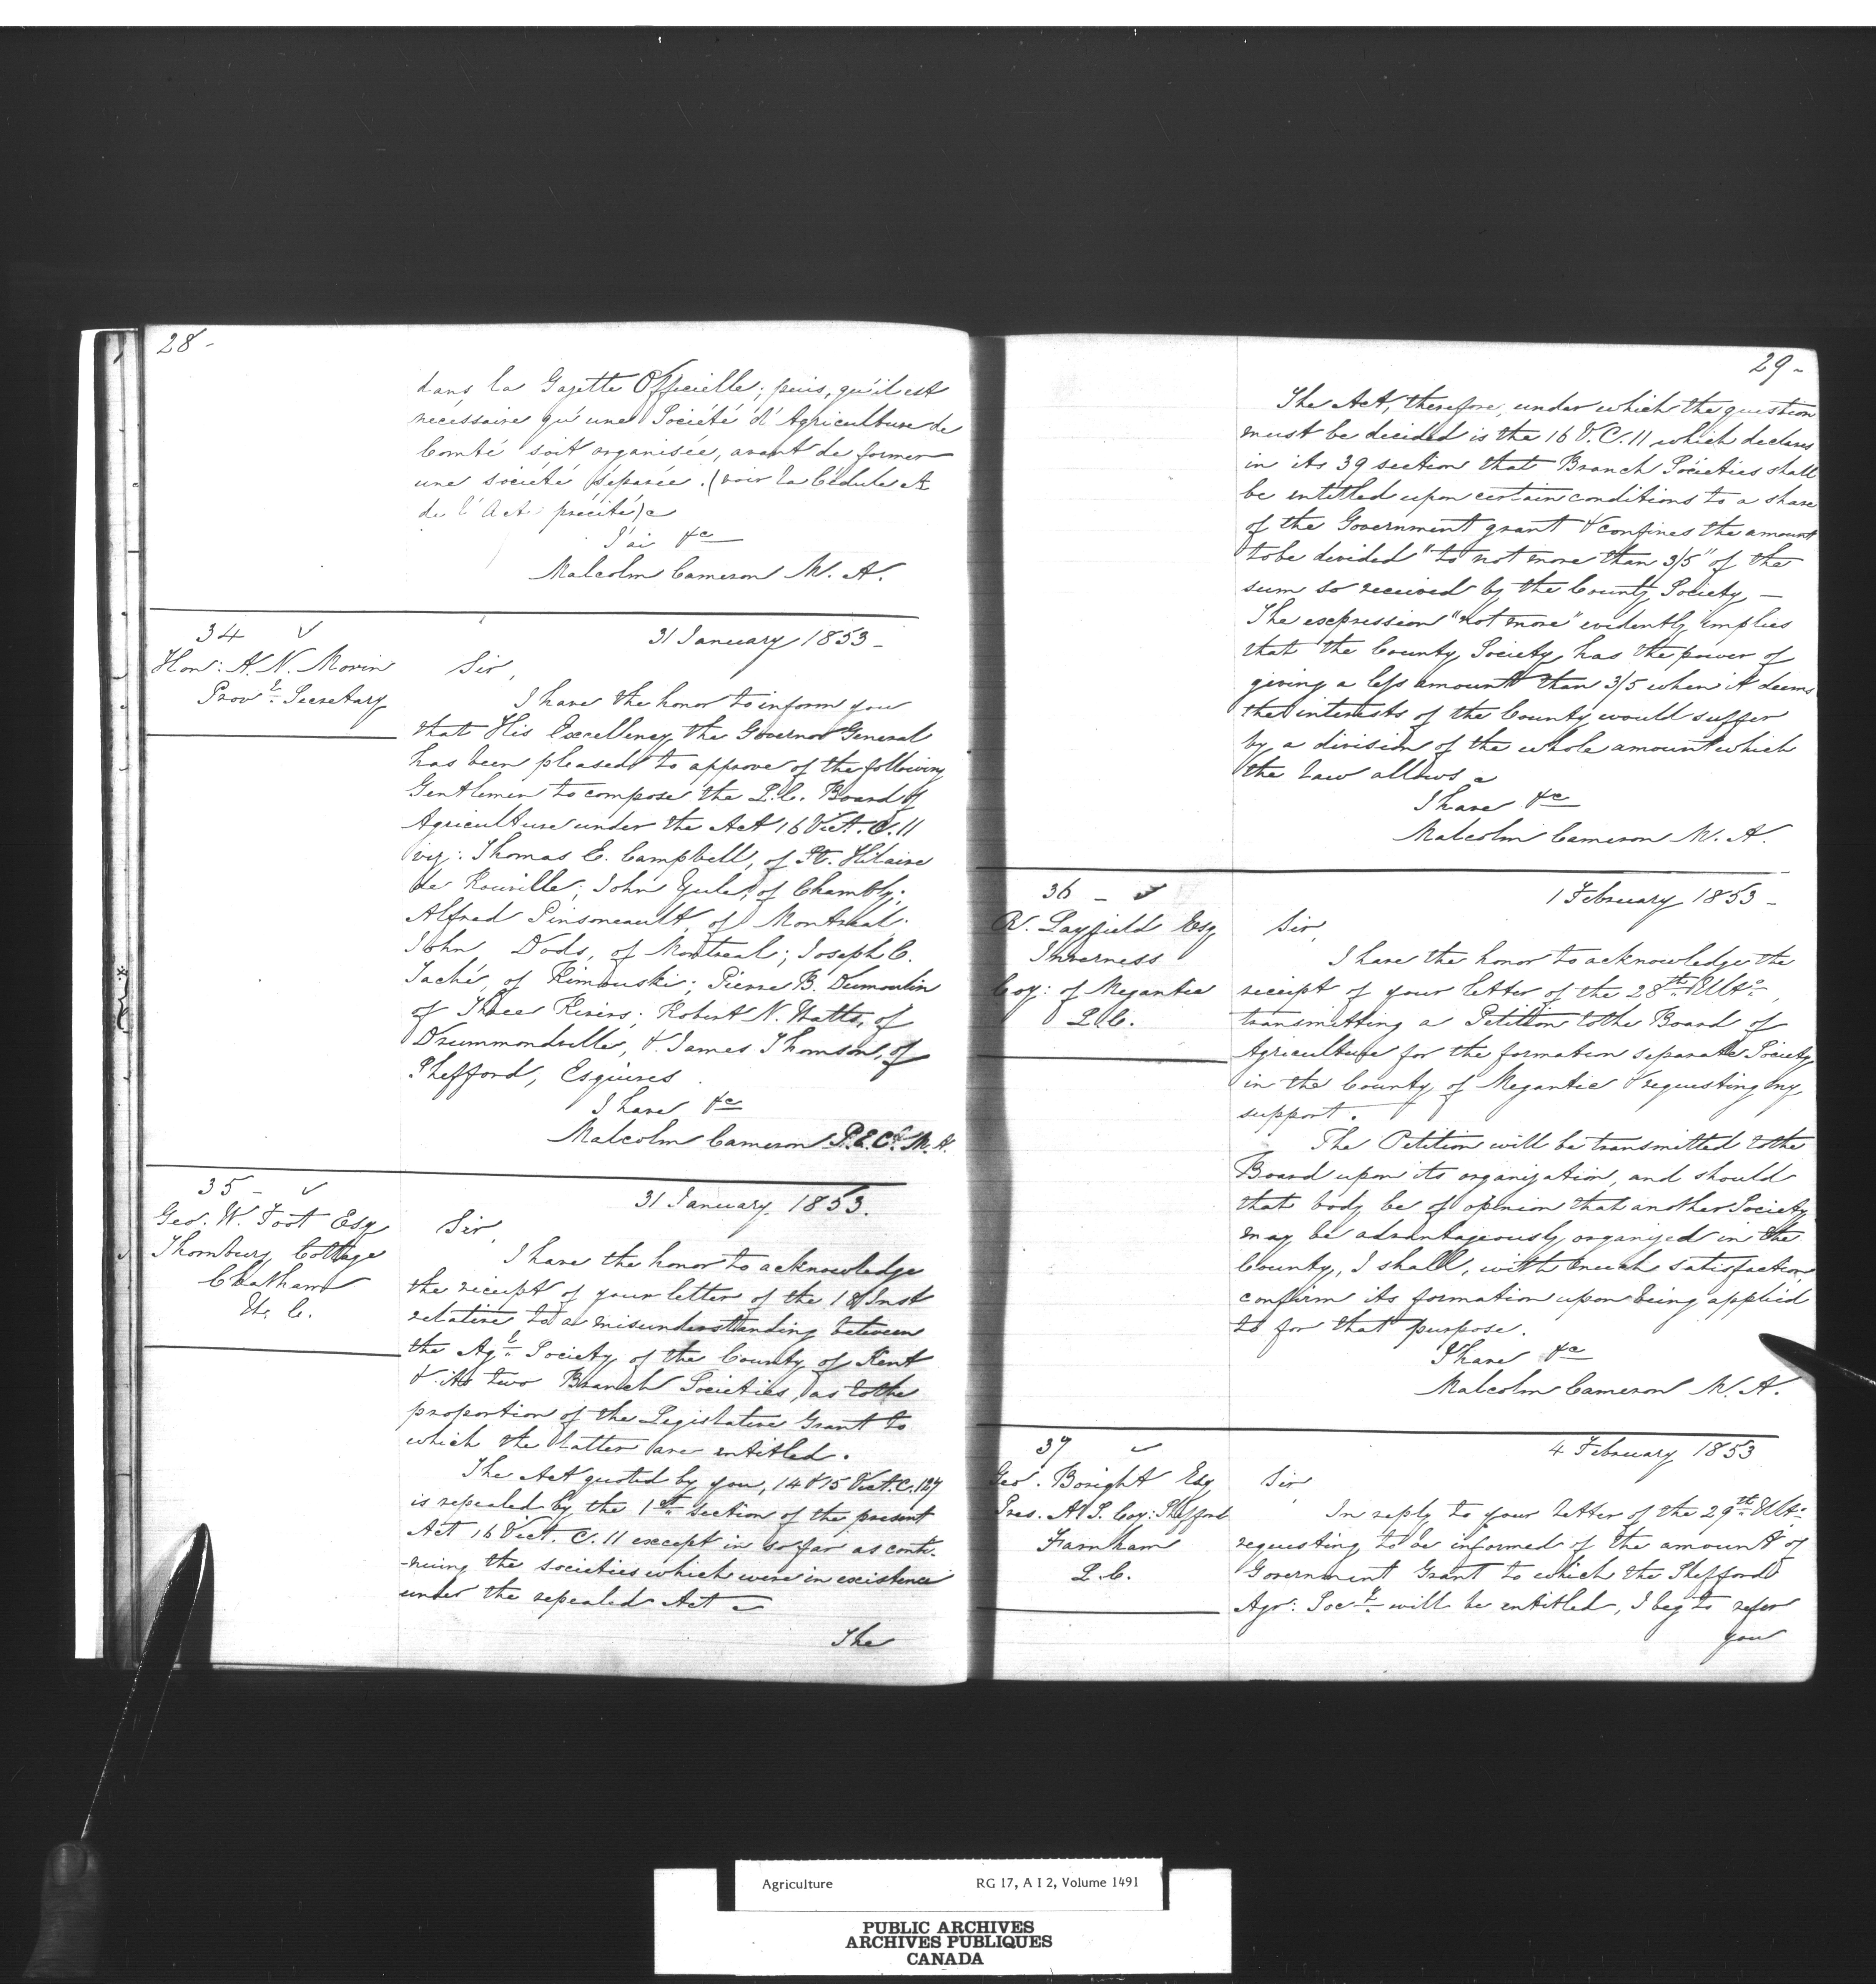 28-
dans la Gazette Officielle; puis, qu'il est
nécessaire qu'une Société d'Agriculture de
Comté soit organisée, avant de former
une société séparée. (voir la Cédule A
de l'Acte précité)
J'ai &c
Malcolm Cameron M. A.
34 ✓
Hon: A. N. Morin
Provl Secretary
31 January 1853-
Sir,
I have the honor to inform you
that His Excellency the Governor General
has been pleased to approve of the following
Gentlemen to compose the L.C. Board of
Agriculture under the Act 16 Vict. C. 11
viz: Thomas E. Campbell, of St. Hilaire
de Rouville; John Yule, of Chambly;
Alfred Pinsoneault, of Montreal.
John Dods, of Montreal; Joseph C.
Taché, of Rimouski; Pierre B. Dumoulin
of Three Rivers; Robert N. Watts, of
Drummondville, & James Thomson, of
Shefford, Esquires.
I have &c
Malcolm Cameron P.E.C. & M.A.
35- ✓
Geo. W. Foot Esq
Thornbury Cottage
Chatham
U. C.
31 January 1853.
Sir,
I have the honor to acknowledge
the receipt of your letter of the 18 Inst
relative to a misunderstanding between
the Agl Society of the County of Kent
& its two Branch Societies, as to the
proportion of the Legislative Grant to
which the latter are entitled.
The Act quoted by you, 14 & 15 Vict. C. 127
is repealed by the 1st section of the present
Act 16 Vict. C. 11 except in so far as conti-
-nuing the societies which were in existence
under the repealed Act -
The
29-
The Act, therefore, under which the question
must be decided is the 16 V. C. 11 which declares
in its 39 section that Branch Societies shall
be entitled upon certain conditions to a share
of the Government grant & confines the amount
to be divided "to not more than 3/5" of the
sum so received by the County Society -
The expression "not more" evidently implies
that the County Society has the power of
giving a less amount than 3/5 when it deems
the interests of the County would suffer
by a division of the whole amount which
the law allows
I have &c
Malcolm Cameron M. A.
36 - ✓
R. Layfield Esq
Inverness
Coy: of Megantic
L.C.
1 February 1853-
Sir,
I have the honor to acknowledge the
receipt of your letter of the 28th Ulto,
transmitting a Petition to the Board of
Agriculture for the formation separate Society
in the County of Megantic & requesting my
support.
The Petition will be transmitted to the
Board upon its organization, and should
that body be of opinion that another Society
may be advantageously organized in the
County, I shall, with much satisfaction,
confirm its formation upon being applied
to for that purpose.
I have &c
Malcolm Cameron M. A.
37 ✓
Geo. Boright Esq
Pres. A. S. Coy: Shefford
Farnham
L.C.
4 February 1853
Sir
In reply to your letter of the 29th Ulto
requesting to be informed of the amount of
Government Grant to which the Shefford
Agr: Socy will be entitled, I beg to refer
you
Agriculture RG 17, A I 2, Volume 1491
PUBLIC ARCHIVES
ARCHIVES PUBLIQUES
CANADA